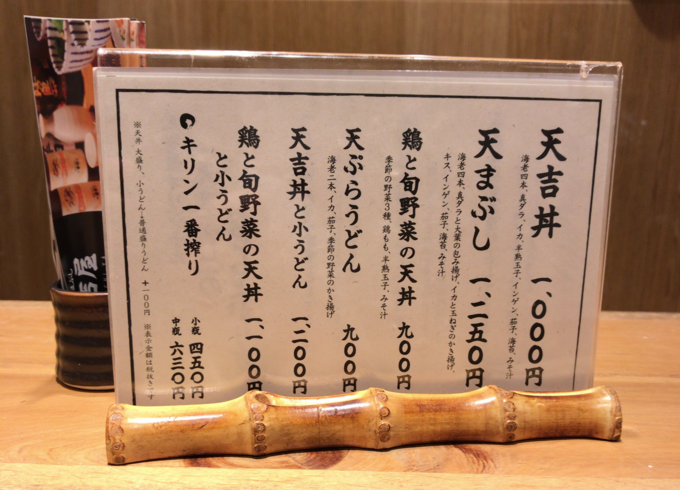 天吉丼 一、〇〇〇円
海老四本、真ダラ、イカ、半熟玉子、インゲン、茄子、海苔、みそ汁
天まぶし 一、二五〇円
海老四本、真ダラと大葉の包み揚げ、イカと玉ねぎのかき揚げ、
キス、インゲン、茄子、海苔、みそ汁
鶏と旬野菜の天丼 九〇〇円
季節の野菜3種、鶏もも、半熟玉子、みそ汁
天ぷらうどん 九〇〇円
海老二本、イカ、茄子、季節の野菜のかき揚げ
天吉丼と小うどん 一、二〇〇円
鶏と旬野菜の天丼
と小うどん 一、一〇〇円
キリン一番搾り
小瓶 四五〇円
中瓶 六三〇円
※天丼 大盛り、小うどん→普通盛りうどん +一〇〇円 ※表示金額は税抜きです